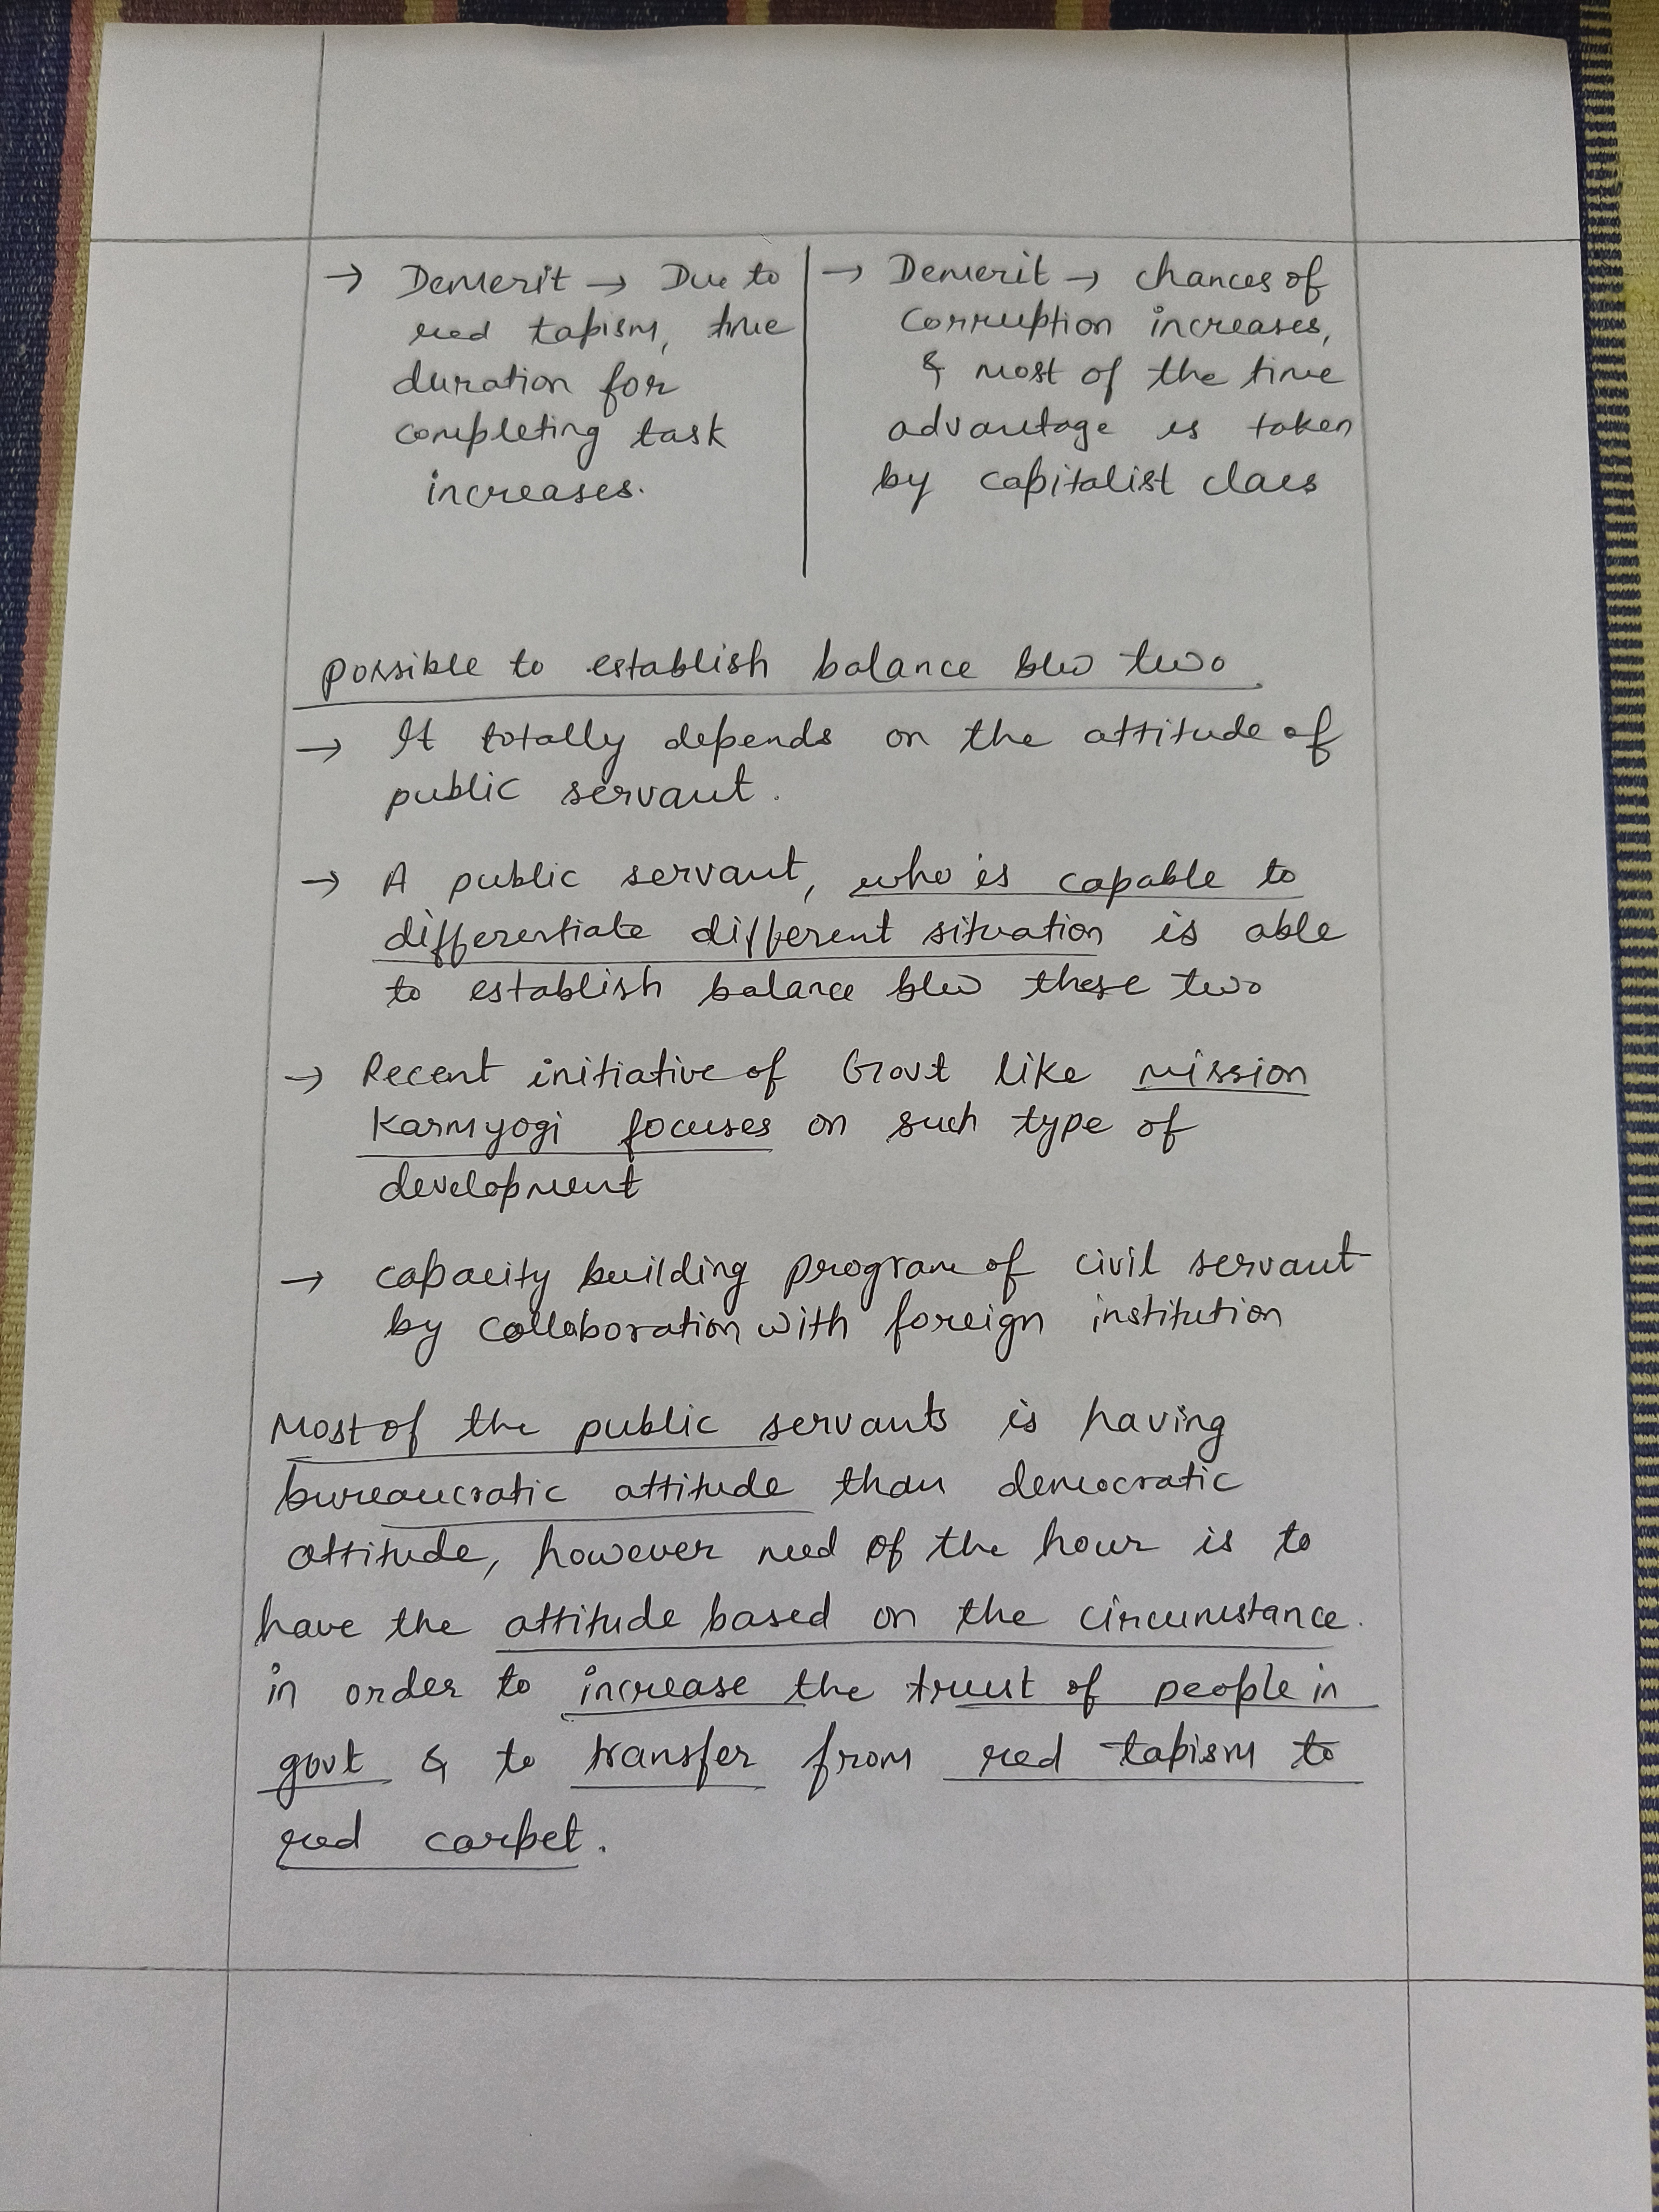 → Demerit → Due to
red tapism, time
duration for
completing task
increases.
→ Demerit → chances of
corruption increases,
& most of the time
advantage is taken
by capitalist class
possible to establish balance b/w two
→ It totally depends on the attitude of
public servant.
→ A public servant, who is capable to
differentiate different situation is able
to establish balance b/w these two
→ Recent initiative of Govt like mission
Karmyogi focuses on such type of
development
→ capacity building program of civil servant
by collaboration with foreign institution
Most of the public servants is having
bureaucratic attitude than democratic
attitude, however need of the hour is to
have the attitude based on the circumstance.
in order to increase the trust of people in
govt & to transfer from red tapism to
red carpet.